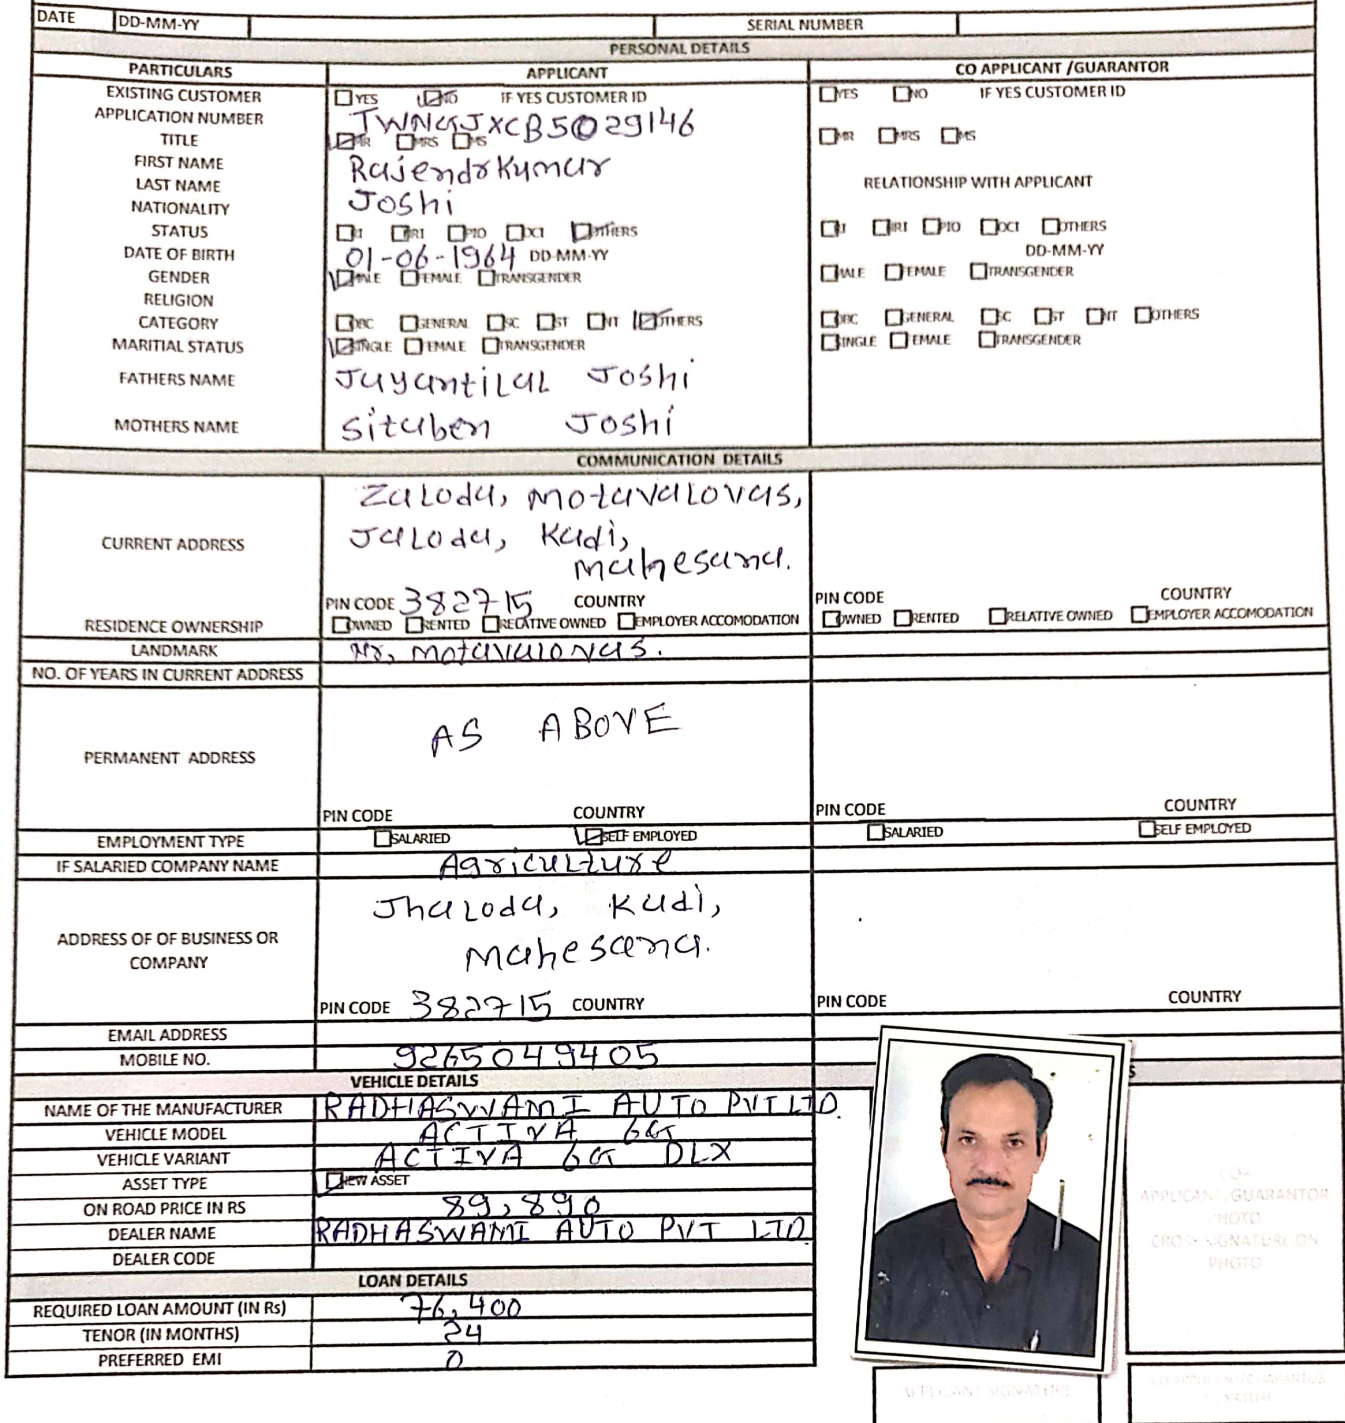 DATE DD-MM-YY SERIAL NUMBER
PERSONAL DETAILS
PARTICULARS APPLICANT CO APPLICANT /GUARANTOR
EXISTING CUSTOMER YES NO IF YES CUSTOMER ID YES NO IF YES CUSTOMER ID
APPLICATION NUMBER TWNGJXCB5029146
TITLE MR MRS MS MR MRS MS
FIRST NAME RajendrKumar
LAST NAME Joshi RELATIONSHIP WITH APPLICANT
NATIONALITY
STATUS RI NRI PIO OCI OTHERS RI NRI PIO OCI OTHERS
DATE OF BIRTH 01-06-1964 DD-MM-YY DD-MM-YY
GENDER MALE FEMALE TRANSGENDER MALE FEMALE TRANSGENDER
RELIGION
CATEGORY OBC GENERAL SC ST NT OTHERS OBC GENERAL SC ST NT OTHERS
MARITIAL STATUS SINGLE FEMALE TRANSGENDER SINGLE FEMALE TRANSGENDER
FATHERS NAME Jayantilal Joshi
MOTHERS NAME Sitaben Joshi
COMMUNICATION DETAILS
Zaloda, Motavalovas,
CURRENT ADDRESS Jaloda, Kadi,
Mahesana.
PIN CODE 382715 COUNTRY PIN CODE COUNTRY
RESIDENCE OWNERSHIP OWNED RENTED RELATIVE OWNED EMPLOYER ACCOMODATION OWNED RENTED RELATIVE OWNED EMPLOYER ACCOMODATION
LANDMARK Nr, Motavalovas.
NO. OF YEARS IN CURRENT ADDRESS
PERMANENT ADDRESS AS ABOVE
PIN CODE COUNTRY PIN CODE COUNTRY
EMPLOYMENT TYPE SALARIED SELF EMPLOYED SALARIED SELF EMPLOYED
IF SALARIED COMPANY NAME Agriculture
Jhaloda, Kadi,
ADDRESS OF OF BUSINESS OR
COMPANY Mahesana.
PIN CODE 382715 COUNTRY PIN CODE COUNTRY
EMAIL ADDRESS
MOBILE NO. 9265049405
VEHICLE DETAILS S
NAME OF THE MANUFACTURER RADHASWAMI AUTO PVT LTD.
VEHICLE MODEL ACTIVA 6G
VEHICLE VARIANT ACTIVA 6G DLX
ASSET TYPE NEW ASSET
ON ROAD PRICE IN RS 89,890
DEALER NAME RADHASWAMI AUTO PVT LTD
DEALER CODE
CO-
APPLICANT/GUARANTOR
PHOTO
CROSS SIGNATURE ON
PHOTO
LOAN DETAILS
REQUIRED LOAN AMOUNT (IN Rs) 76,400
TENOR (IN MONTHS) 24
PREFERRED EMI 0
APPLICANT SIGNATURE CO APPLICANT/GUARANTOR
SIGNATURE